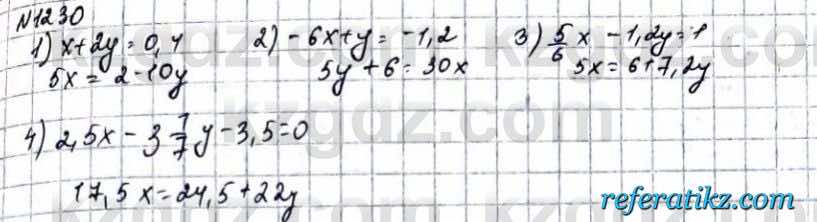 №1230
1) x+2y=0,4 2) -6x+y=-1,2 3) 5/6 x -1,2y=1
5x=2-10y 5y+6=30x 5x=6+7,2y
4) 2,5x-3 1/7 y-3,5=0
17,5x=24,5+22y
referatikz.com